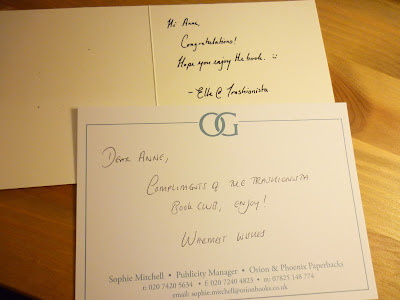 Hi Anne,
Congratulations!
Hope you enjoy the book. :)
- Elle @ Trashionista
OG
DEAR ANNE,
COMPLIMENTS OF THE TRASHIONISTA
BOOK CLUB, ENJOY!
WARMEST WISHES
Sophie Mitchell • Publicity Manager • Orion & Phoenix Paperbacks
t: 020 7420 5634 • f: 020 7240 4823 • m: 07825 148 774
email: sophie.mitchell@orionbooks.co.uk